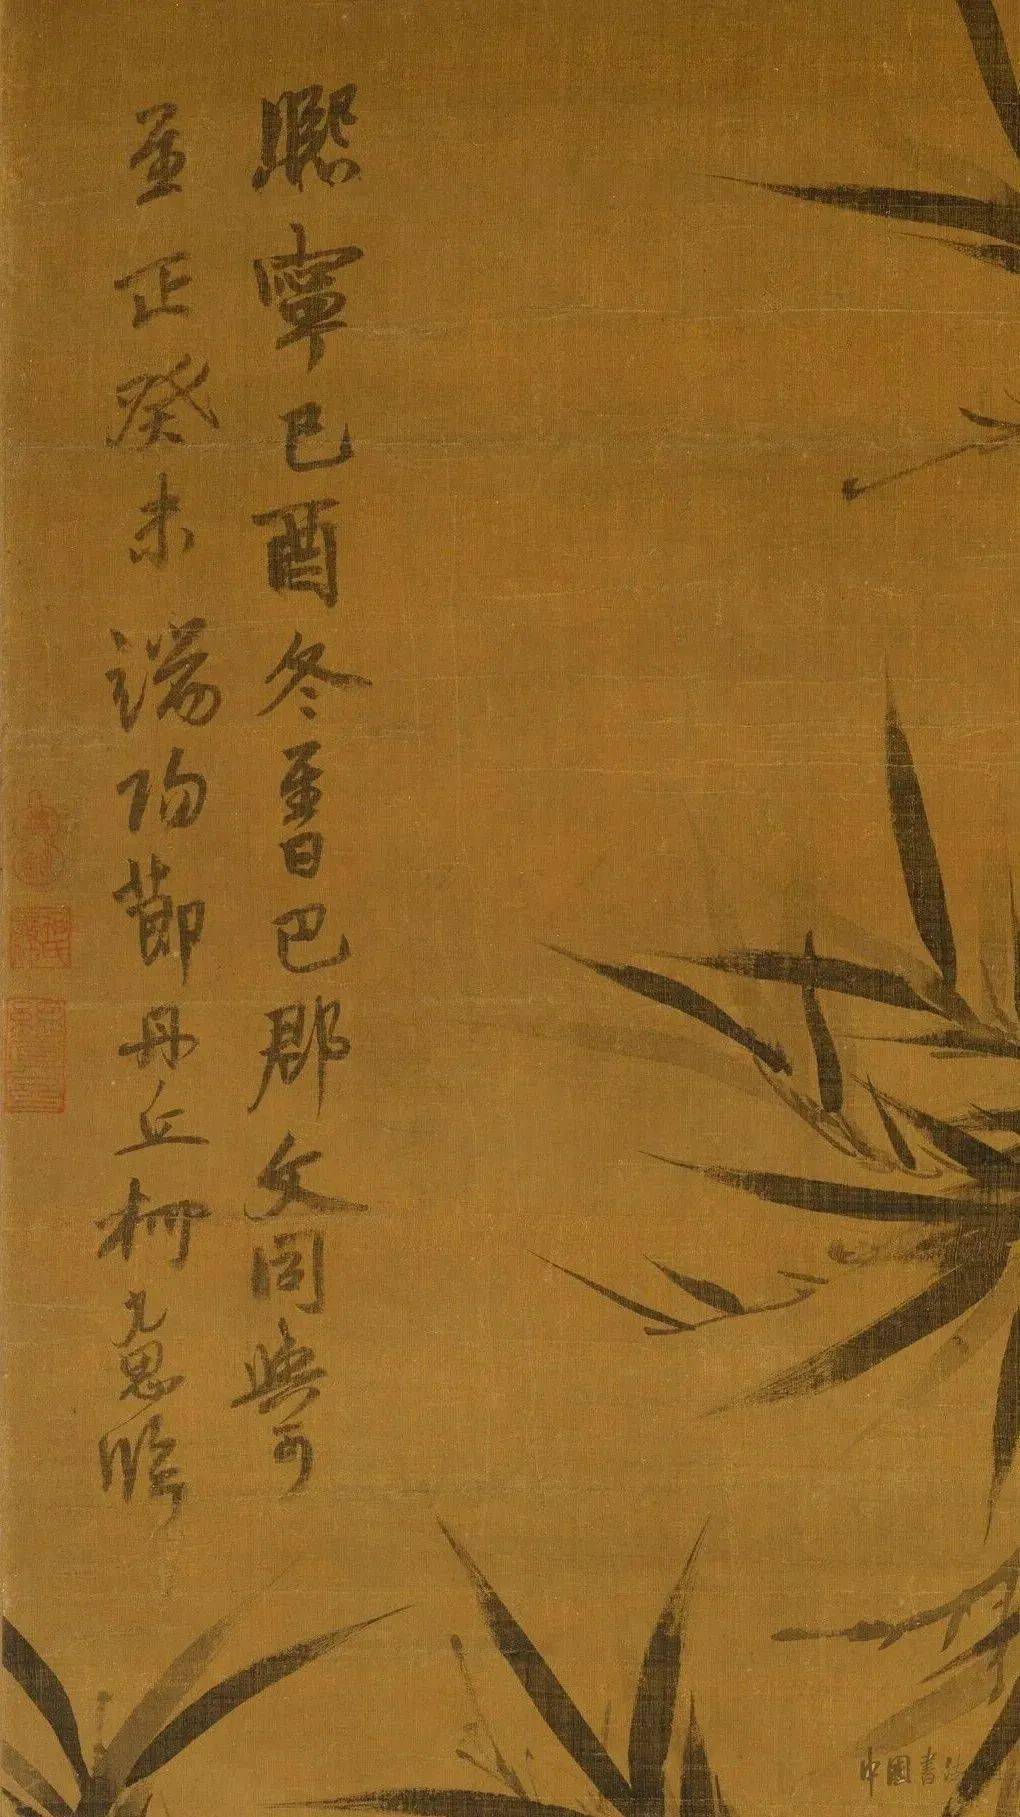 熙寧己酉冬至日巴郡文同與可
至正癸未端陽節丹丘柯九思臨
中國書法